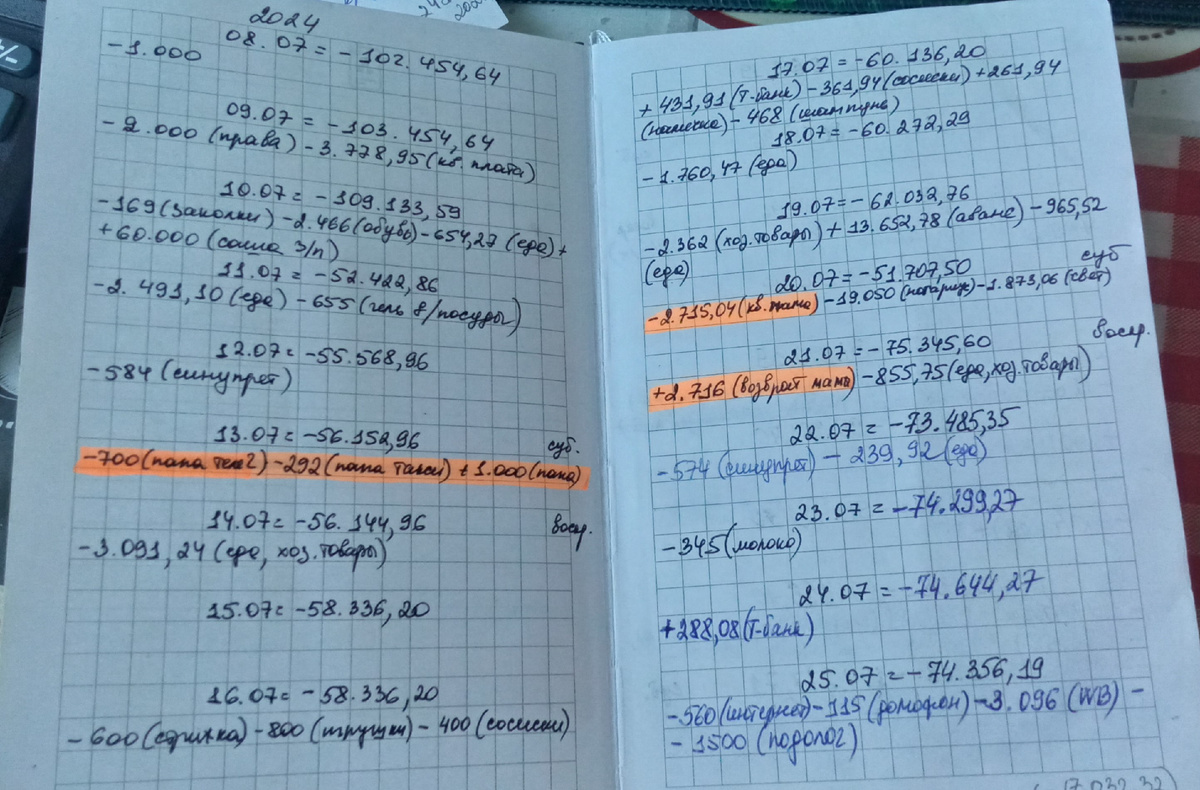 2024
08.07 = -102.454,64
-1.000
09.07 = -103.454,64
-2.000 (права) -3.778,95 (кв. плата)
10.07 = -109.133,59
-169 (заколки) -2.466 (обувь) -654,27 (еда) +
+60.000 (саша з/п)
11.07 = -52.422,86
-2.491,10 (еда) -655 (гель д/посуды)
12.07 = -55.568,96
-584 (синупрет)
13.07 = -56.152,96 суб.
-700 (папа теле2) -292 (папа такси) +1.000 (папа)
14.07 = -56.144,96 воскр.
-3.091,24 (еда, хоз. товары)
15.07 = -58.336,20
16.07 = -58.336,20
-600 (стрижка) -800 (игрушки) -400 (сосиски)
17.07 = -60.136,20
+431,91 (Т-банк) -361,94 (сосиски) +261,94
-468 (шампунь)
18.07 = -60.272,29
-1.760,47 (еда)
19.07 = -62.032,76
-2.362 (хоз. товары) +13.652,78 (аванс) -965,52
(еда)
20.07 = -51.707,50 суб
-2.715,04 (кв. мама) -19.050 (нотариус) -1.873,06 (свет)
21.07 = -75.345,60 воскр.
+2.716 (возврат мама) -855,75 (еда, хоз. товары)
22.07 = -73.485,35
-574 (синупрет) - 239,92 (еда)
23.07 = -74.299,27
-345 (молоко)
24.07 = -74.644,27
+288,08 (Т-банк)
25.07 = -74.356,19
-560 (интернет) -115 (домофон) -3.096 (WB) -
-1500 (подолог)